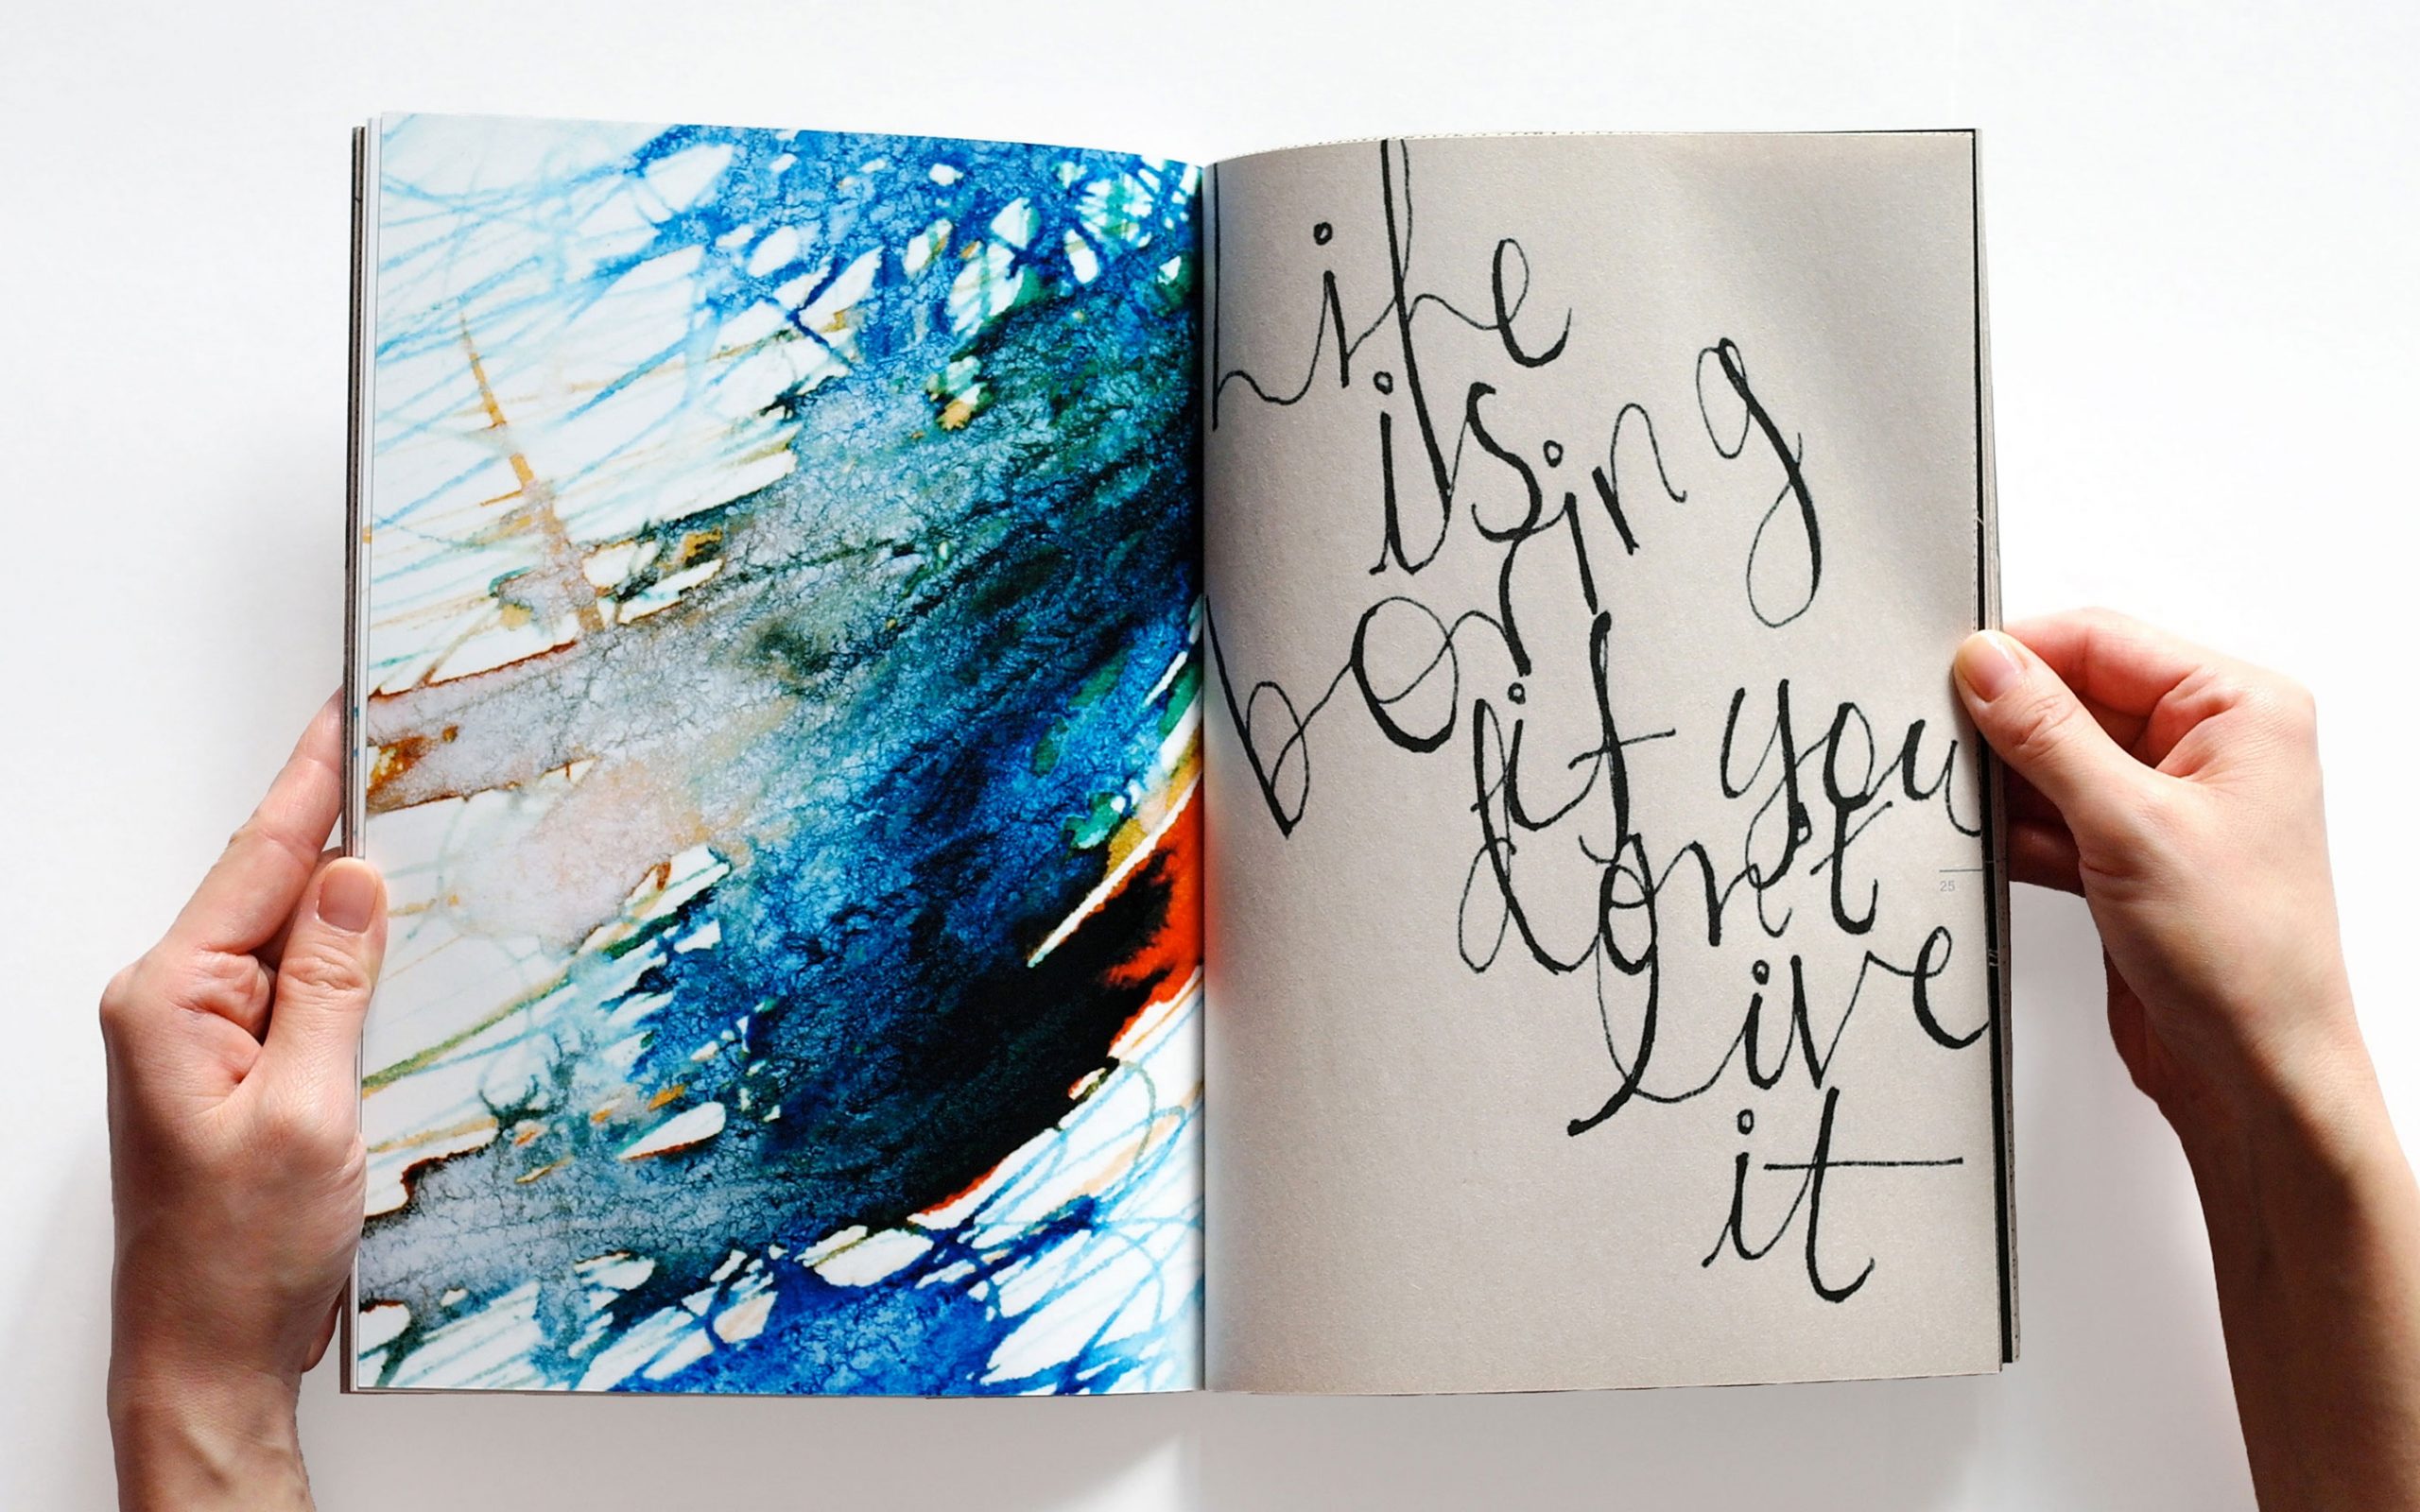 Life
is
boring
if you
dont
live
it
25